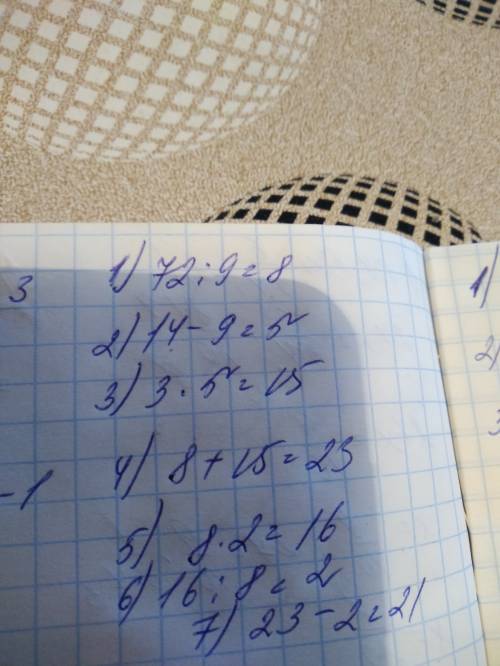 1) 72:9=8
3
2) 14-9=5
3) 3·5=15
4) 8+15=23
-1
5) 8·2=16
6) 16:8=2
7) 23-2=21
1)
2)
3